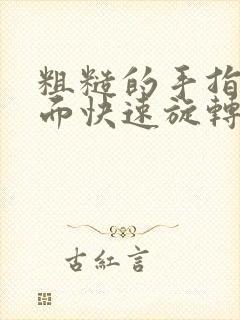 粗糙的手指
而快速旋轉
古紅言